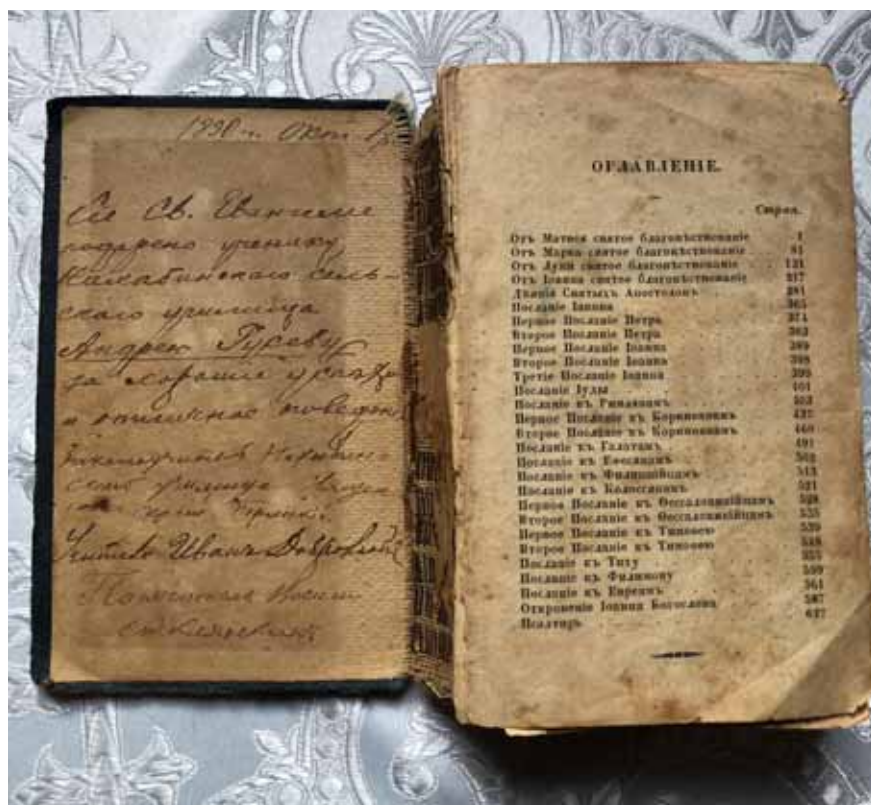 1890 г. Окт
Сіе Св. Евангеліе
подарено ученику
сель-
скаго училища
Андрею Гусеву
за хорошіе успѣхи
и отличное поведен
училища
Учитель Иванъ
ОГЛАВЛЕНІЕ.
Стран.
Отъ Матѳея святое благовѣствованіе 1
Отъ Марка святое благовѣствованіе 81
Отъ Луки святое благовѣствованіе 131
Отъ Іоанна святое благовѣствованіе 217
Дѣянія Святыхъ Апостоловъ 281
Посланіе Іакова 365
Первое Посланіе Петра 374
Второе Посланіе Петра 383
Первое Посланіе Іоанна 389
Второе Посланіе Іоанна 398
Третіе Посланіе Іоанна 399
Посланіе Іуды 401
Посланіе къ Римлянамъ 403
Первое Посланіе къ Коринѳянамъ 435
Второе Посланіе къ Коринѳянамъ 469
Посланіе къ Галатамъ 491
Посланіе къ Ефесянамъ 502
Посланіе къ Филиппійцамъ 513
Посланіе къ Колоссянамъ 521
Первое Посланіе къ Ѳессалоникійцамъ 528
Второе Посланіе къ Ѳессалоникійцамъ 535
Первое Посланіе къ Тимоѳею 539
Второе Посланіе къ Тимоѳею 548
Посланіе къ Титу 555
Посланіе къ Филимону 559
Посланіе къ Евреямъ 561
Откровеніе Іоанна Богослова 587
Псалтирь 627